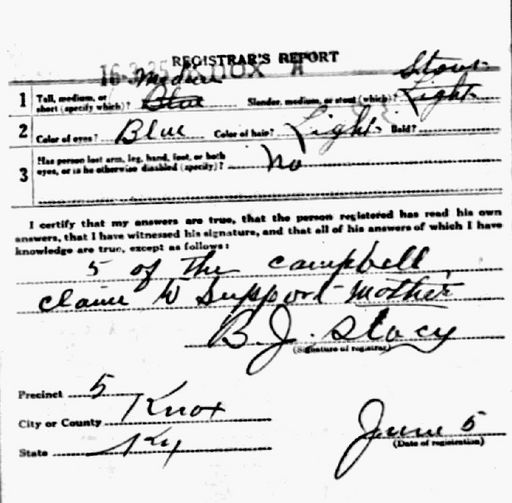 REGISTRAR'S REPORT
16-3-25 A
Medium Stout
1 Tall, medium, or short (specify which)? Blue Slender, medium, or stout (which)? Light
2 Color of eyes? Blue Color of hair? Light Bald?
3 Has person lost arm, leg, hand, foot, or both eyes, or is he otherwise disabled (specify)? No
I certify that my answers are true, that the person registered has read his own
answers, that I have witnessed his signature, and that all of his answers of which I have
knowledge are true, except as follows:
5 of the campbell
claim to Support mother
B. J. Stacy
(Signature of registrar)
Precinct 5
City or County Knox
State Ky
June 5
(Date of registration)